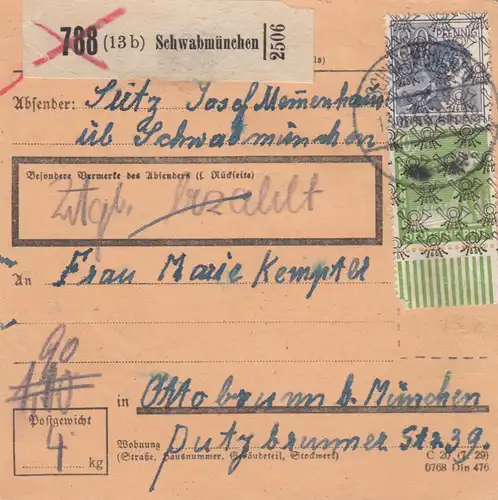 788 (13b) Schwabmünchen 2506
PFENNIG
Absender: Seitz Josef Memmenhausen
üb Schwabmünchen
Besondere Vermerke des Absenders (s. Rückseite)
Zstgb. bezahlt
An Frau Marie Kempter
90
1.10
in Ottobrunn b. München
Postgewicht
4 kg
Wohnung Putzbrunner Str 39.
(Straße, Hausnummer, Gebäudeteil, Stockwerk)
C 20 (7. 29)
0768 Din 476